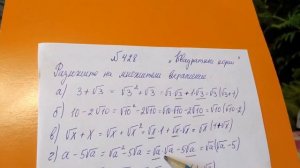 №428 "Квадратные корни"
Разложите на множители выражение:
а) 3 + √3 = √3² + √3 = √3·√3 + 1·√3 = √3(√3+1)
б) 10 - 2√10 = √10² - 2√10 = √10·√10 - 2√10 = √10(√10-2)
в) √x + x = √x + √x² = √x·1 + √x·√x = √x(1+√x)
г) a - 5√a = √a² - 5√a = √a·√a - 5√a = √a(√a-5)